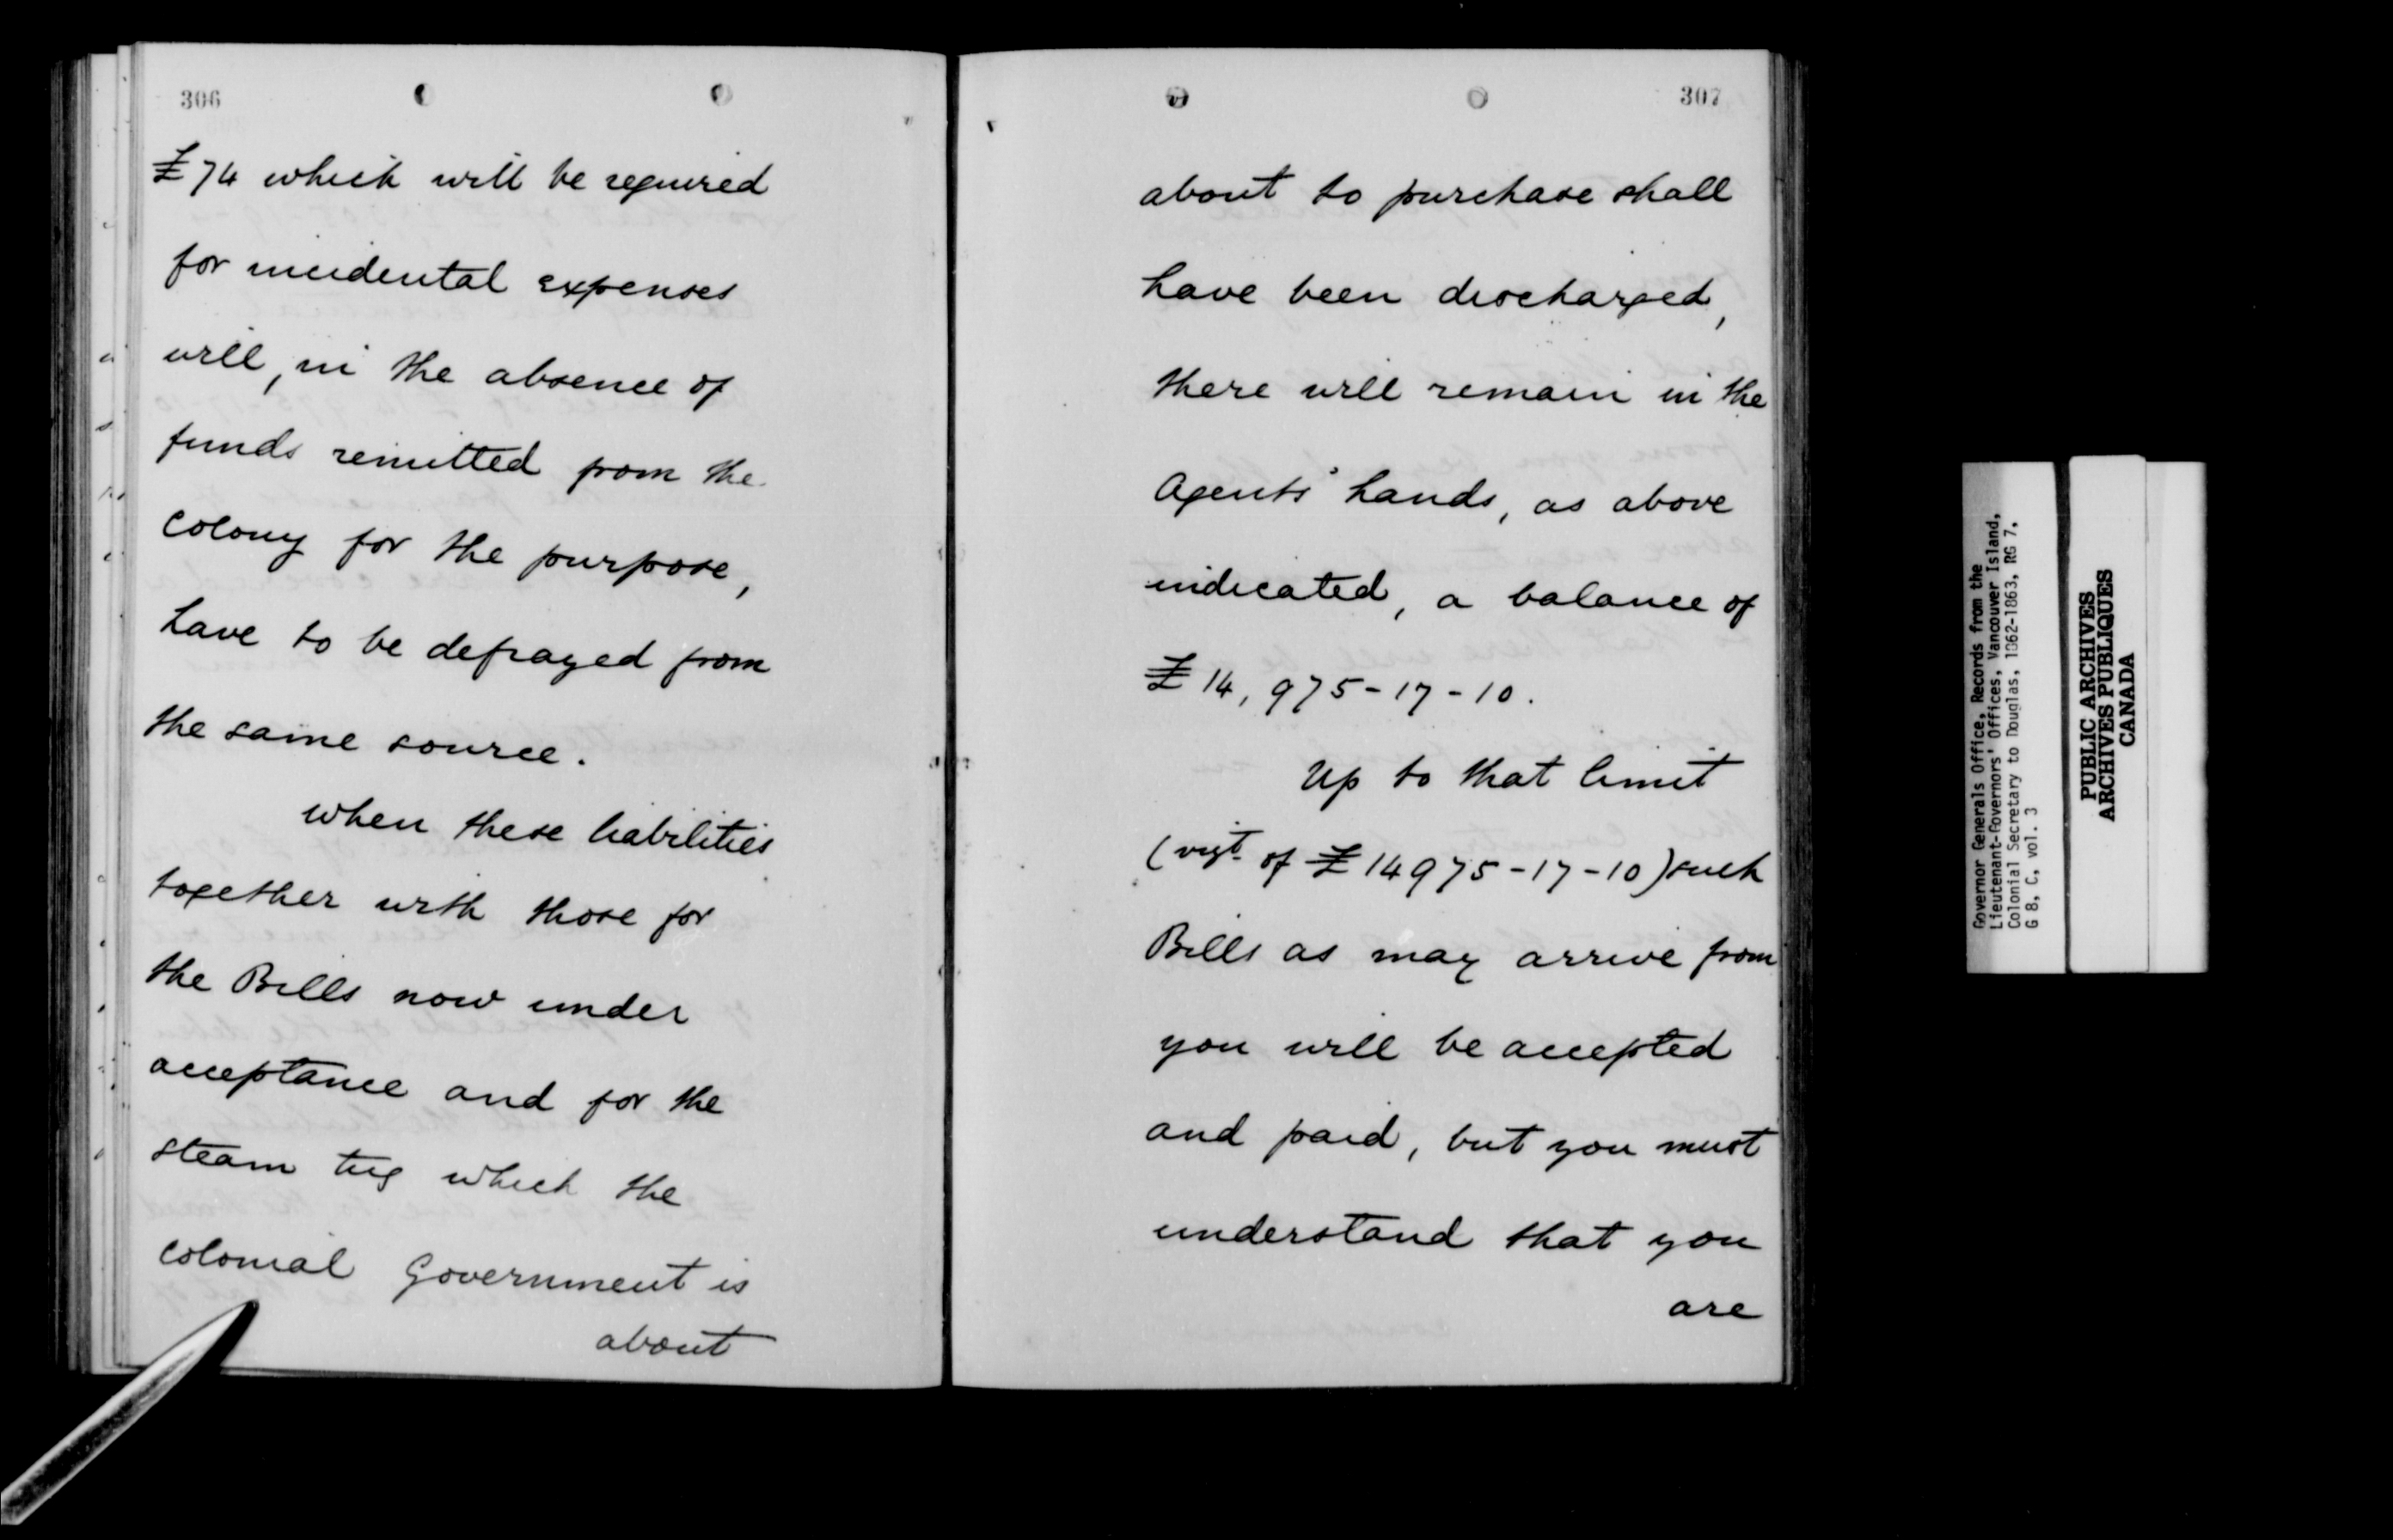 306
£74 which will be required
for incidental expenses
will, in the absence of
funds remitted from the
Colony for the purpose,
have to be defrayed from
the same source.
When these liabilities
together with those for
the Bills now under
acceptance and for the
steam tug which the
Colonial Government is
about
307
about to purchase shall
have been discharged,
there will remain in the
Agents' hands, as above
indicated, a balance of
£14,975-17-10.
Up to that limit
(vizt of £14975-17-10) such
Bills as may arrive from
you will be accepted
and paid, but you must
understand that you
are
Governor Generals Office, Records from the
Lieutenant-Governors' Offices, Vancouver Island,
Colonial Secretary to Douglas, 1862-1863, RG 7,
G 8, C, vol. 3
PUBLIC ARCHIVES
ARCHIVES PUBLIQUES
CANADA